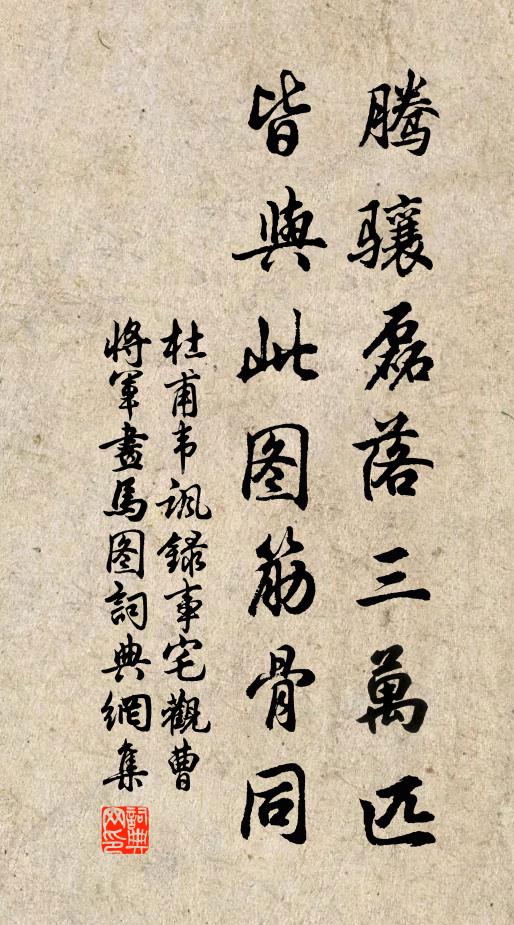 腾骧磊落三萬匹
皆與此图筋骨同
杜甫韦諷録事宅觀曹
將軍畫馬图詞典網集
詞典网印